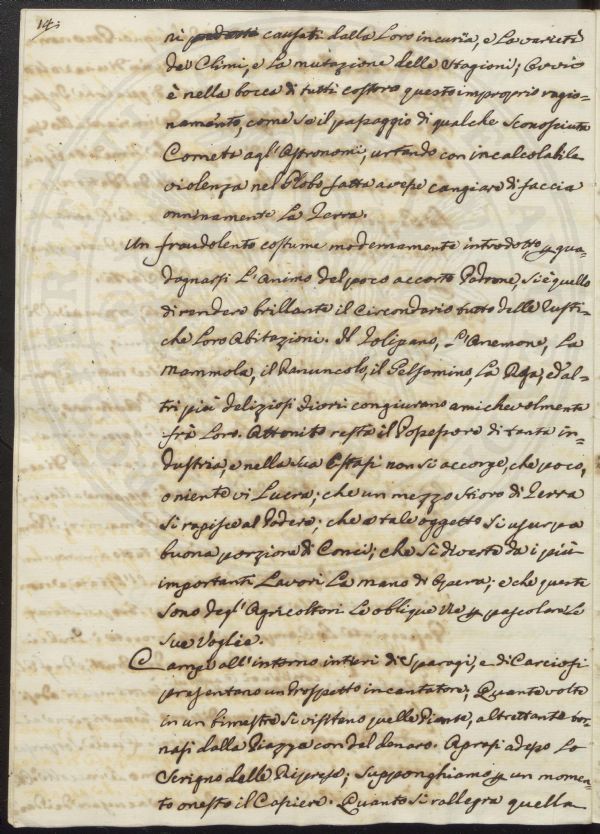 14.
ni causati dalla Loro incuria, e La varietà
de' Climi, e La mutazione delle Stagioni; Ovvio
è nella bocca di tutti costoro questo improprio ragio=
namento, come se il passaggio di qualche sconosciuta
Cometa agl' Astronomi, urtando con incalcolabile
violenza nel Globo fatta avesse cangiare di faccia
onninamente La Terra.
Un fraudolento costume modernamente introdotto p gua=
dagnarsi L'animo del poco accorto Padrone, si è quello
di rendere brillante il Circondario tutto delle Rusti=
che Loro Abitazioni. Il Tolipano, L'Anemone, La
Mammola, il Ranuncolo, il Gelsomino, La Rosa, ed al=
tri più deliziosi Fiori congiurano amichevolmente
frà Loro. Attonito resta il Possessore di tanta in=
dustria, e nella sua Estasi non si accorge, che poco,
o niente vi Lucra; che un mezzo Stioro di Terra
si rapisce al Podere; che a tale oggetto si usurpa
buona porzione di Conci; che si diverte da i più
importanti Lavori La mano d'opera; e che queste
sono degl' Agricoltori Le oblique vie p pascolare Le
sue voglie.
Campi all'intorno intieri di Sparagi, e di Carciofi
presentano un Prospetto incantatore; Quante volte
in un bimestre si visitano quelle Piante, altrettante tor=
nasi dalla Piazza con del denaro. Aprasi adesso Lo
Scrigno delle Riprese; Supponghiamo p un momen=
to onesto il Cassiere. Quanto si rallegra quella